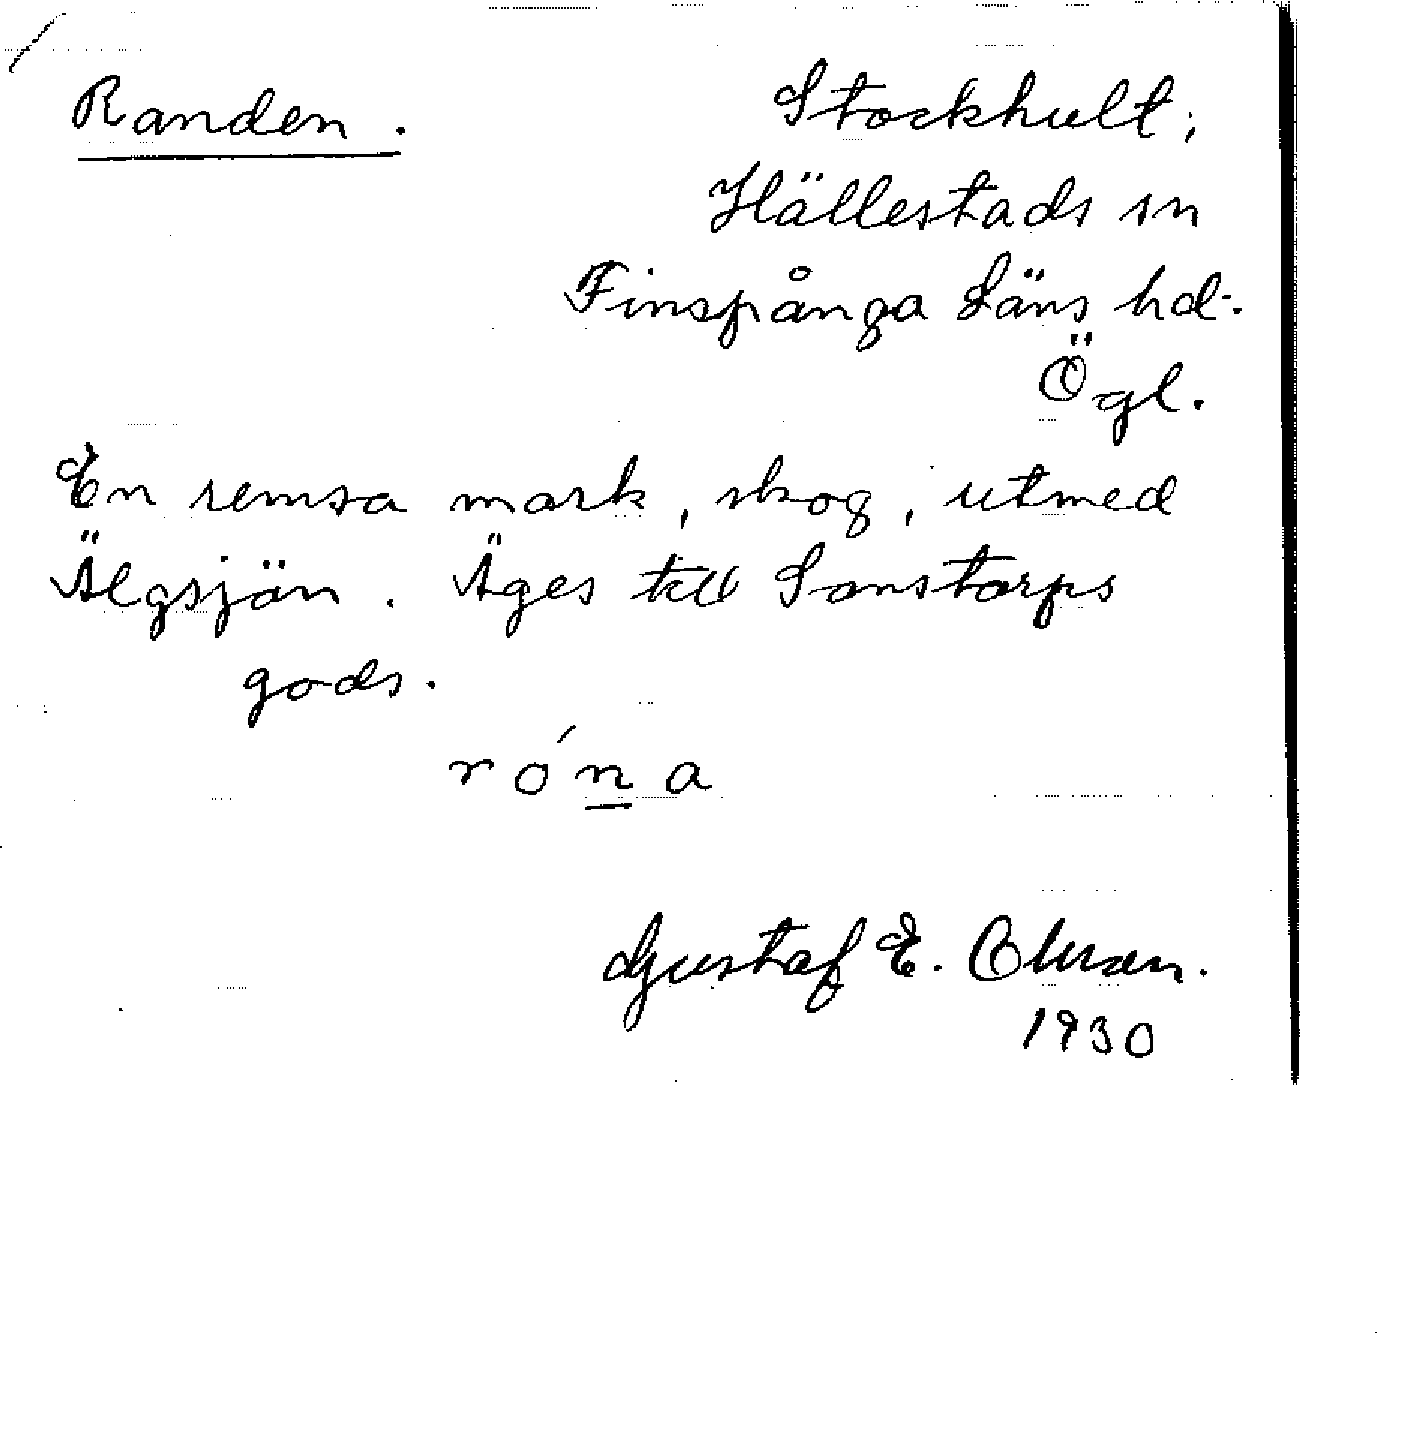 Randen.
Stockhult,
Hällestads sn
Finspånga Läns hd.
Ögl.
En remsa mark, skog, utmed
Älgsjön. Äges till Sonstorps
gods.
róna
Gustaf E. Olsson.
1930